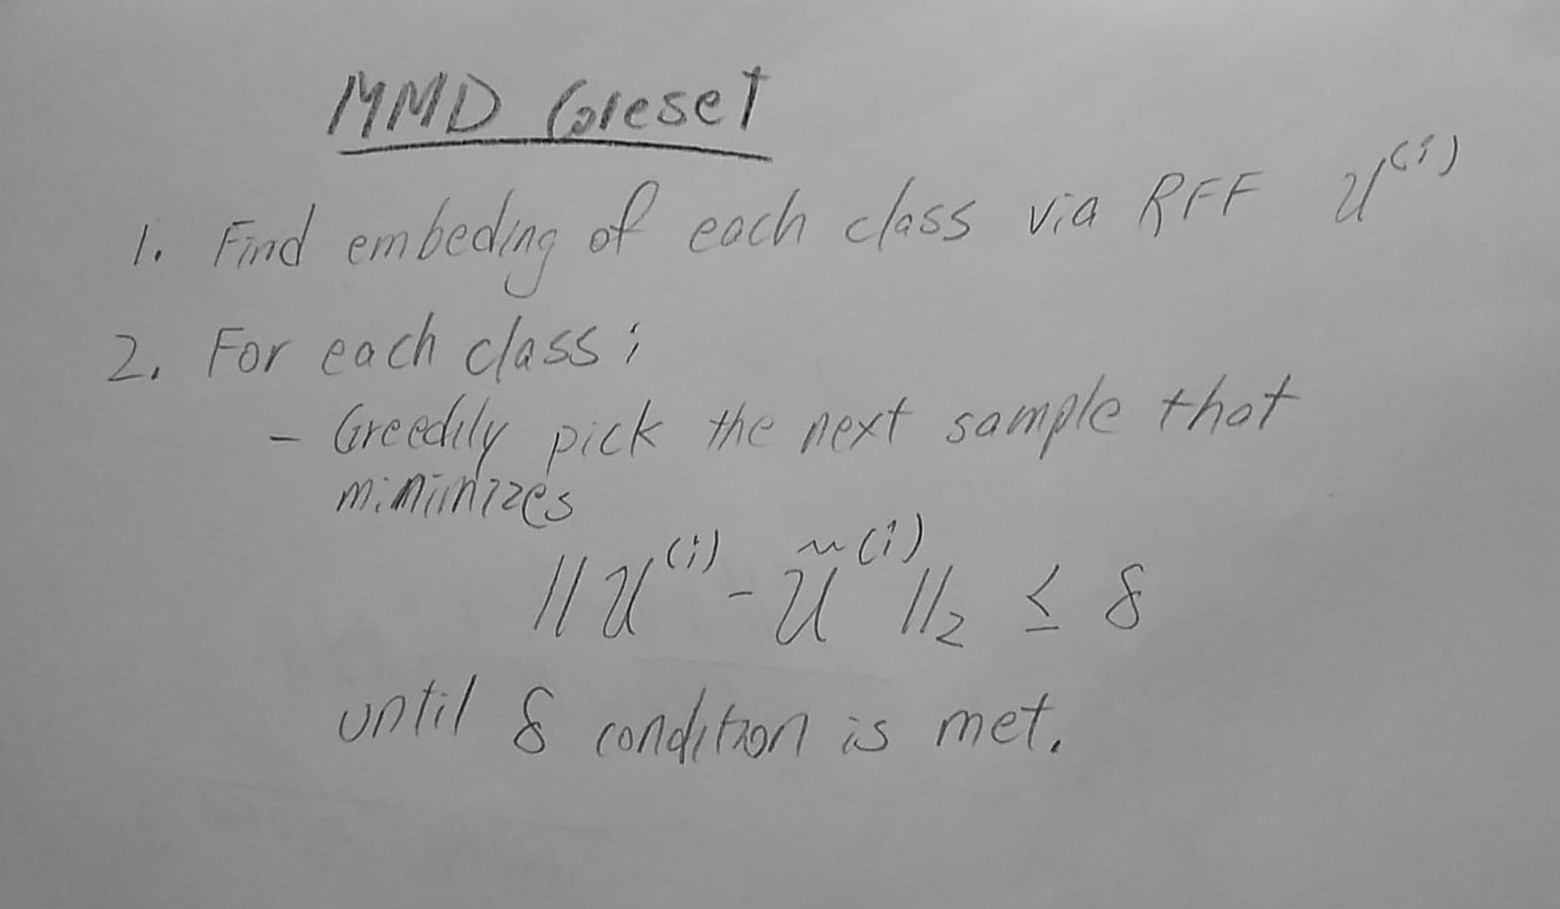 MMD Coreset
1. Find embeding of each class via RFF U^(i)
2. For each class i
- Greedily pick the next sample that
minimizes
||U^(i) - Ũ^(i)||_2 ≤ δ
until δ condition is met.